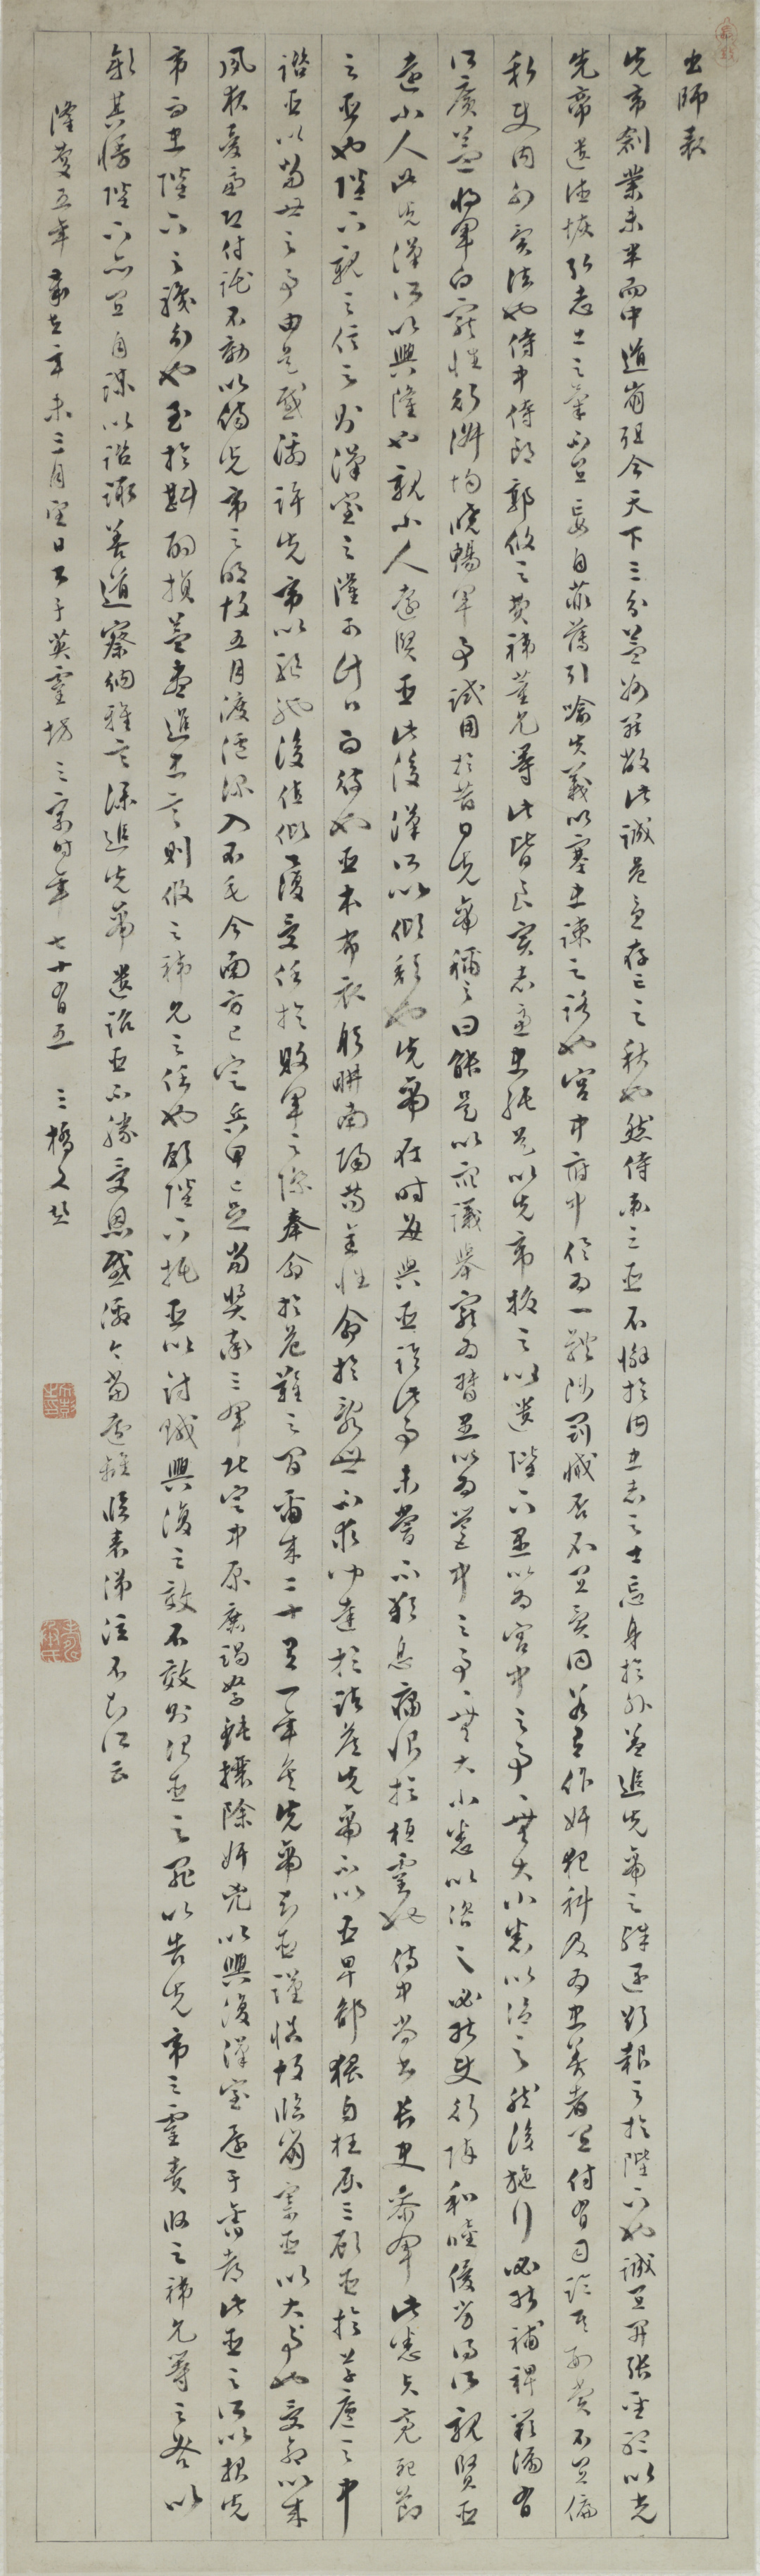 出師表
先帝創業未半而中道崩殂今天下三分益州罷敝此誠危急存亡之秋也然侍衛之臣不懈於內忠志之士忘身於外蓋追先帝之殊遇欲報之於陛下也誠宜開張聖聽以光
先帝遺德恢弘志士之氣不宜妄自菲薄引喻失義以塞忠諫之路也宮中府中俱為一體陟罰臧否不宜異同若有作奸犯科及為忠善者宜付有司論其刑賞不宜偏
私使內外異法也侍中侍郎郭攸之費禕董允等此皆良實志慮忠純是以先帝拔之以遺陛下愚以為宮中之事〻無大小悉以諮之然後施行必能補裨闕漏有
所廣益將軍向寵性行淑均曉暢軍事試用於昔日先帝稱之曰能是以眾議舉寵為督愚以為營中之事〻無大小悉以諮之必能使行陣和睦優劣得所親賢臣
遠小人此先漢所以興隆也親小人遠賢臣此後漢所以傾頹也先帝在時每與臣論此事未嘗不歎息痛恨於桓靈也侍中尚書長史參軍此悉貞亮死節
之臣也陛下親之信之則漢室之隆可計日而待也臣本布衣躬畊南陽苟全性命於亂世不求聞達於諸侯先帝不以臣卑鄙猥自枉屈三顧臣於草廬之中
諮臣以當世之事由是感激許先帝以驅馳後值傾覆受任於敗軍之際奉命於危難之間爾來二十有一年矣先帝知臣謹慎故臨崩寄臣以大事也受命以來
夙夜憂慮恐付託不効以傷先帝之明故五月渡瀘深入不毛今南方已定兵甲已足當獎率三軍北定中原庶竭駑鈍攘除奸兇以興復漢室還于舊都此臣之所以報先
帝而忠陛下之職分也至於斟酌損益盡進忠言則攸之禕允之任也願陛下托臣以討賊興復之效不效則治臣之罪以告先帝之靈責攸之禕允等之咎以
彰其慢陛下亦宜自謀以諮諏善道察納雅言深追先帝遺詔臣不勝受恩感激今當遠離臨表涕泣不知所云
隆慶五年歲在辛未三月望日書于英靈坊之寓時年七十有五 三橋文彭